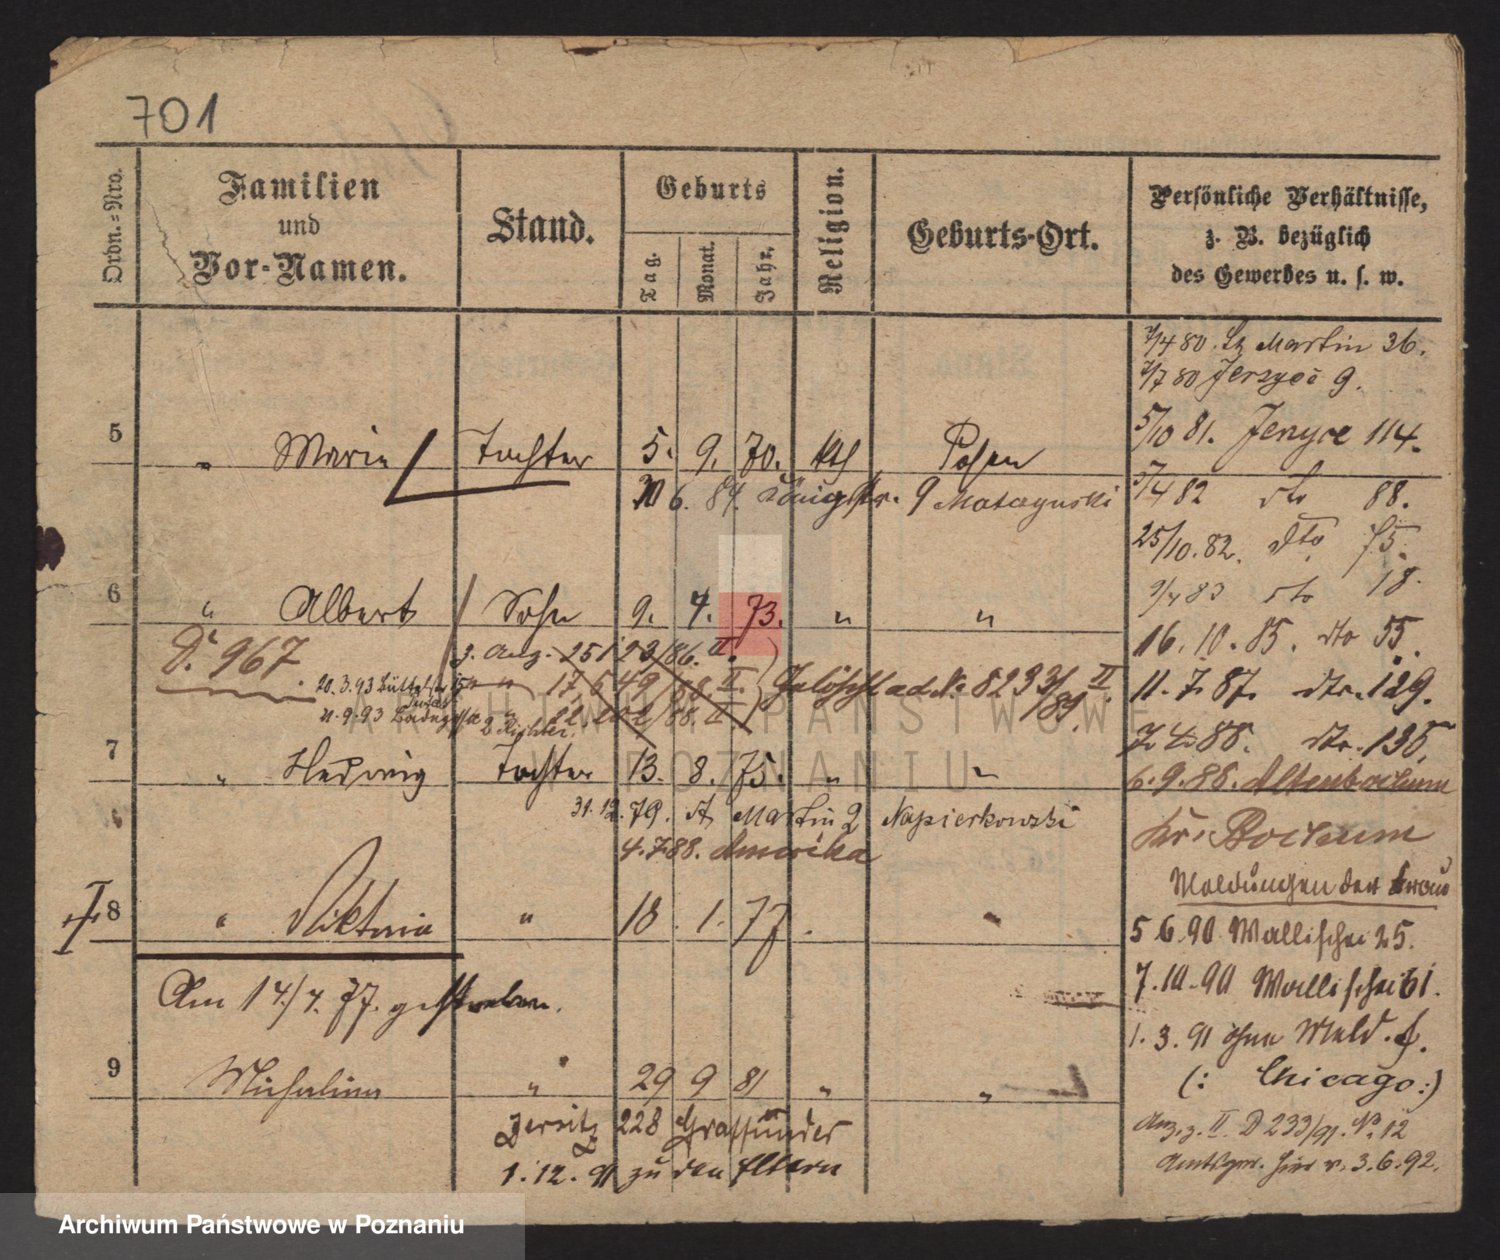 701
Ordn.=Nro.
Familien
und
Vor-Namen.
Stand.
Geburts
Tag.
Monat.
Jahr.
Religion.
Geburts-Ort.
Persönliche Verhältnisse,
z. B. bezüglich
des Gewerbes u. s. w.
1/4 80. St Martin 36.
1/7 80 Jerzyce 9.
5/10 81. Jerzyce 114.
5 " Marie Tochter 5. 9. 70. kth Posen
6. 84. Königstr. 9
1/4 82 dto 88.
25/10. 82. dto 75.
6 " Albert Sohn 9. 4. 73. " "
1/4 83 dto 18.
D. 967.
3. Aug. 25123/86. II.
16. 10. 85. dto 55.
" " 17,649/88 II. Gelöscht ad No 8233/89. II
20.3.93
11. 7. 87. dto. 129.
21.9.93
22. 202/88. II
2 Richter.
7. 4. 88. dto. 135.
7 " Hedwig Tochter 13. 8. 75. " "
6. 9. 88. Altenbochum
31. 12. 79. St Martin 2 Napierkowski
Kr. Bochum
4.7.88. Amerika
Meldungen der Frau
8 " Viktoria " 18. 1. 77.
5 6. 90 Wallischei 25.
Am 14/4. 77. gestorben.
7. 10. 90 Wallischei 61.
1. 3. 91 ohne Meld. f.
9 Michalina " 29 9 81 " "
(: Chicago :)
Jersitz 228 Grassunder
Anz. z. II. D 233/91. No. 12
1. 12. 91 zu den Eltern
v. 3.6.92.
ARCHIWUM PAŃSTWOWE
W POZNANIU
Archiwum Państwowe w Poznaniu